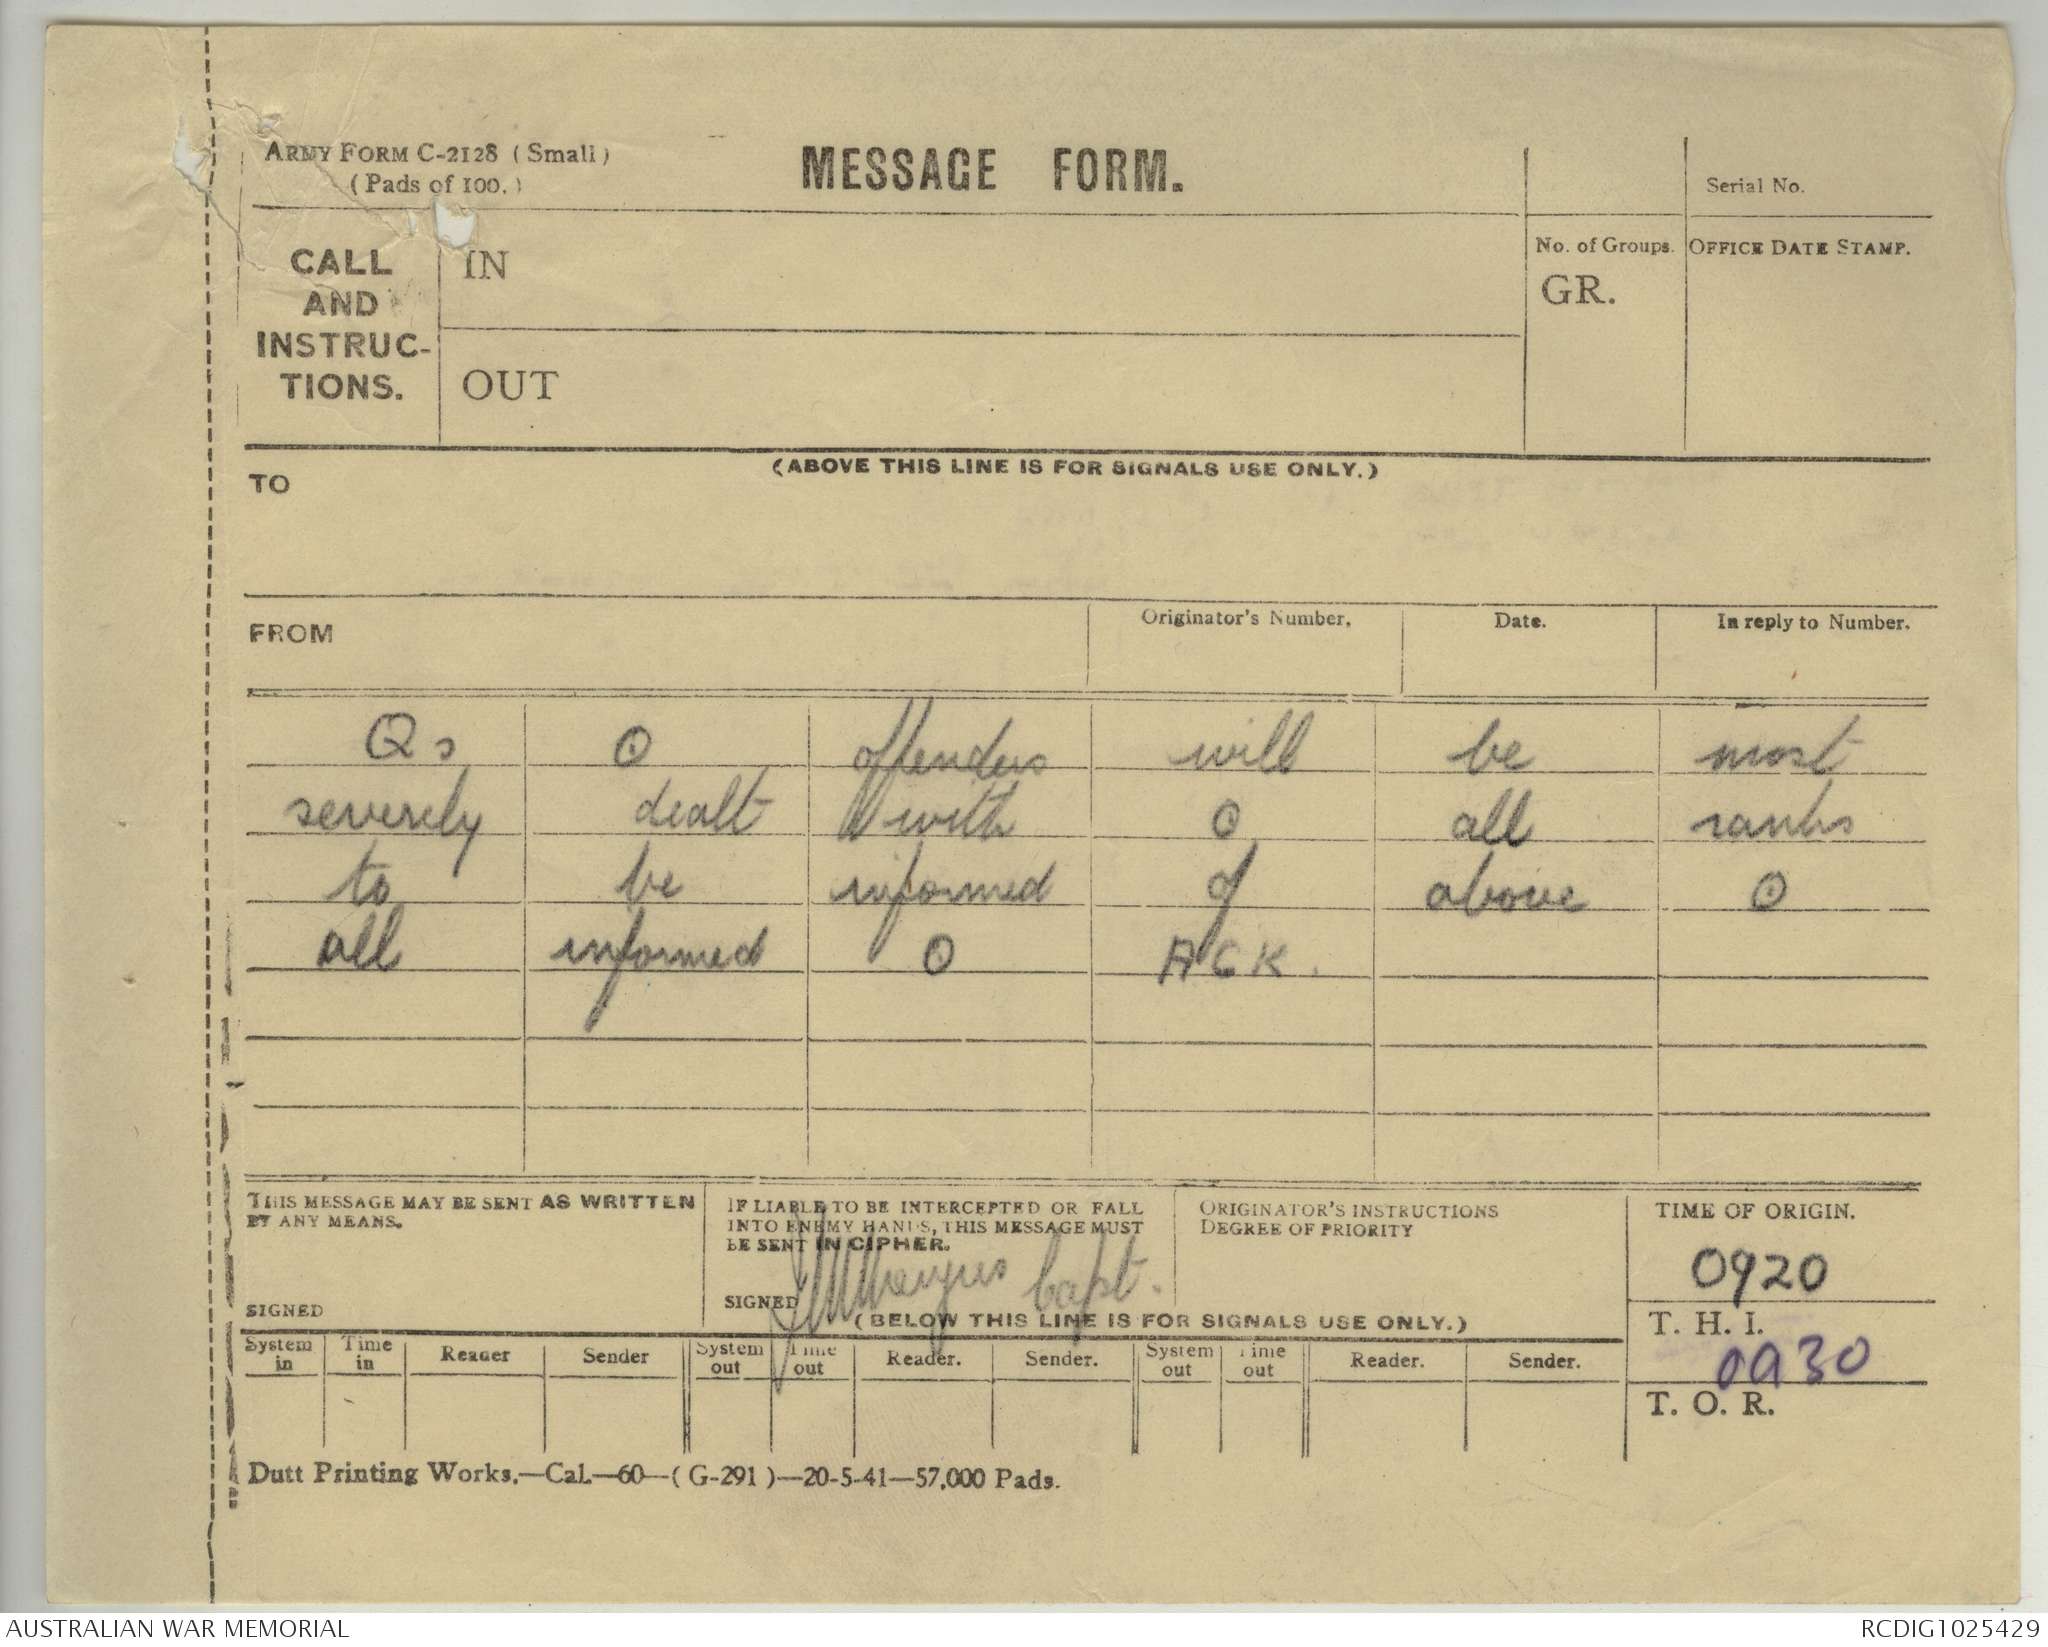 ARMY FORM C-2128 (Small)
(Pads of 100.)
MESSAGE FORM.
Serial No.
CALL
AND
INSTRUC-
TIONS.
IN
OUT
No. of Groups.
GR.
OFFICE DATE STAMP.
(ABOVE THIS LINE IS FOR SIGNALS USE ONLY.)
TO
FROM
Originator's Number.
Date.
In reply to Number.
Qs ⊙ offenders will be most
severely dealt with ⊙ all ranks
to be informed of above ⊙
all informed ⊙ ACK.
THIS MESSAGE MAY BE SENT AS WRITTEN
BY ANY MEANS.
SIGNED
IF LIABLE TO BE INTERCEPTED OR FALL
INTO ENEMY HANDS, THIS MESSAGE MUST
BE SENT IN CIPHER.
SIGNED Capt.
ORIGINATOR'S INSTRUCTIONS
DEGREE OF PRIORITY
TIME OF ORIGIN.
0920
T. H. I.
0930
T. O. R.
(BELOW THIS LINE IS FOR SIGNALS USE ONLY.)
System in Time in Reader Sender System out Time out Reader. Sender. System out Time out Reader. Sender.
Dutt Printing Works.—Cal.—60—(G-291)—20-5-41—57,000 Pads.
AUSTRALIAN WAR MEMORIAL
RCDIG1025429